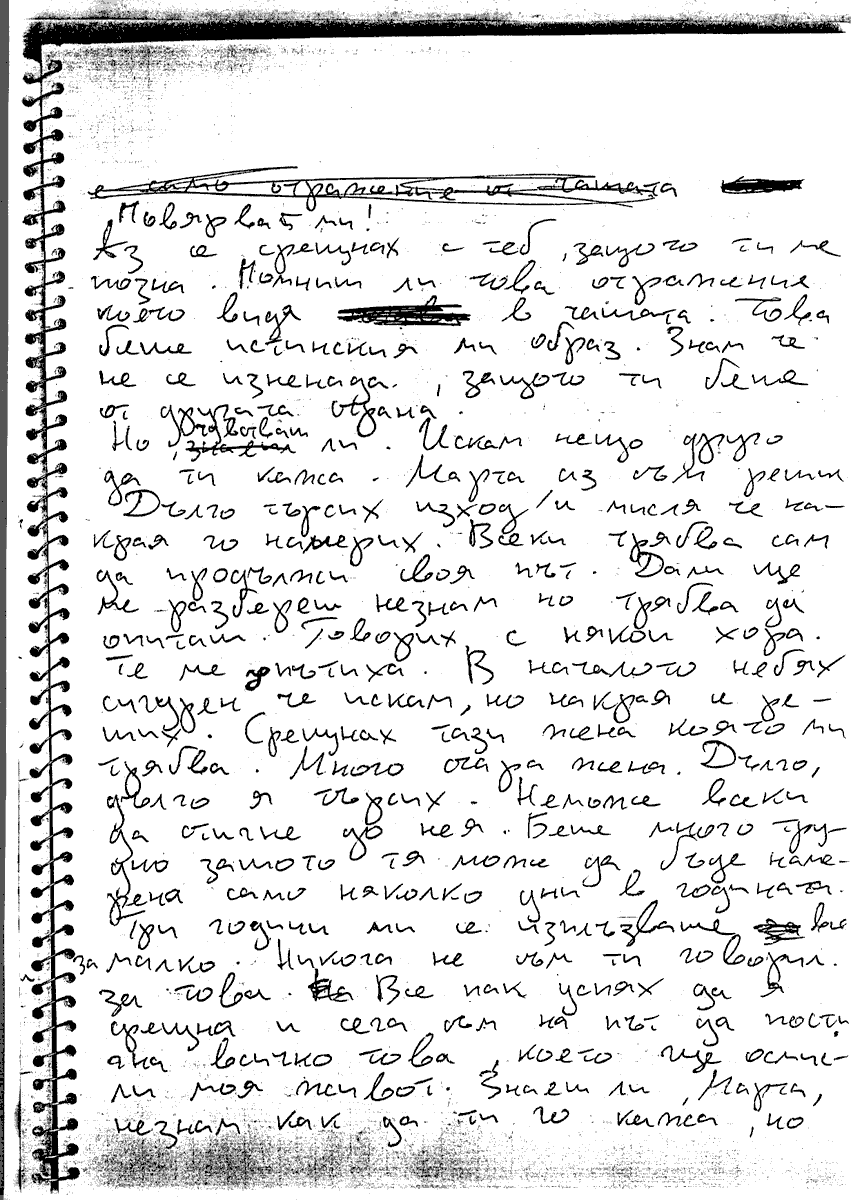 е само отражение от чашата
Повярвай ми!
Аз се срещнах с теб, защото ти ме
позна. Помниш ли това отражение
което видя в чашата. Това
беше истинския ми образ. Знам че
не се изненада., защото ти беше
от другата страна.
Но, ли. Искам нещо друго
да ти кажа. Марта аз съм реши
Дълго търсих изход и мисля че на-
края го намерих. Всеки трябва сам
да продължи своя път. Дали ще
ме разбереш незнам но трябва да
опиташ. Говорих с някои хора.
Те ме упътиха. В началото небях
сигурен че искам, но накрая се ре-
ших. Срещнах тази жена която ми
трябва. Много стара жена. Дълго,
дълго я търсих. Неможе всеки
да стигне до нея. Беше много тру-
дно защото тя може да бъде наме-
рена само няколко дни в годината.
Три години ми се изплъзваше все
за малко. Никога не съм ти говорил.
за това. Все пак успях да я
срещна и сега съм на път да пости
гна всичко това, което ще осмис-
ли моя живот. Знаеш ли, Марта,
незнам как да ти го кажа, но